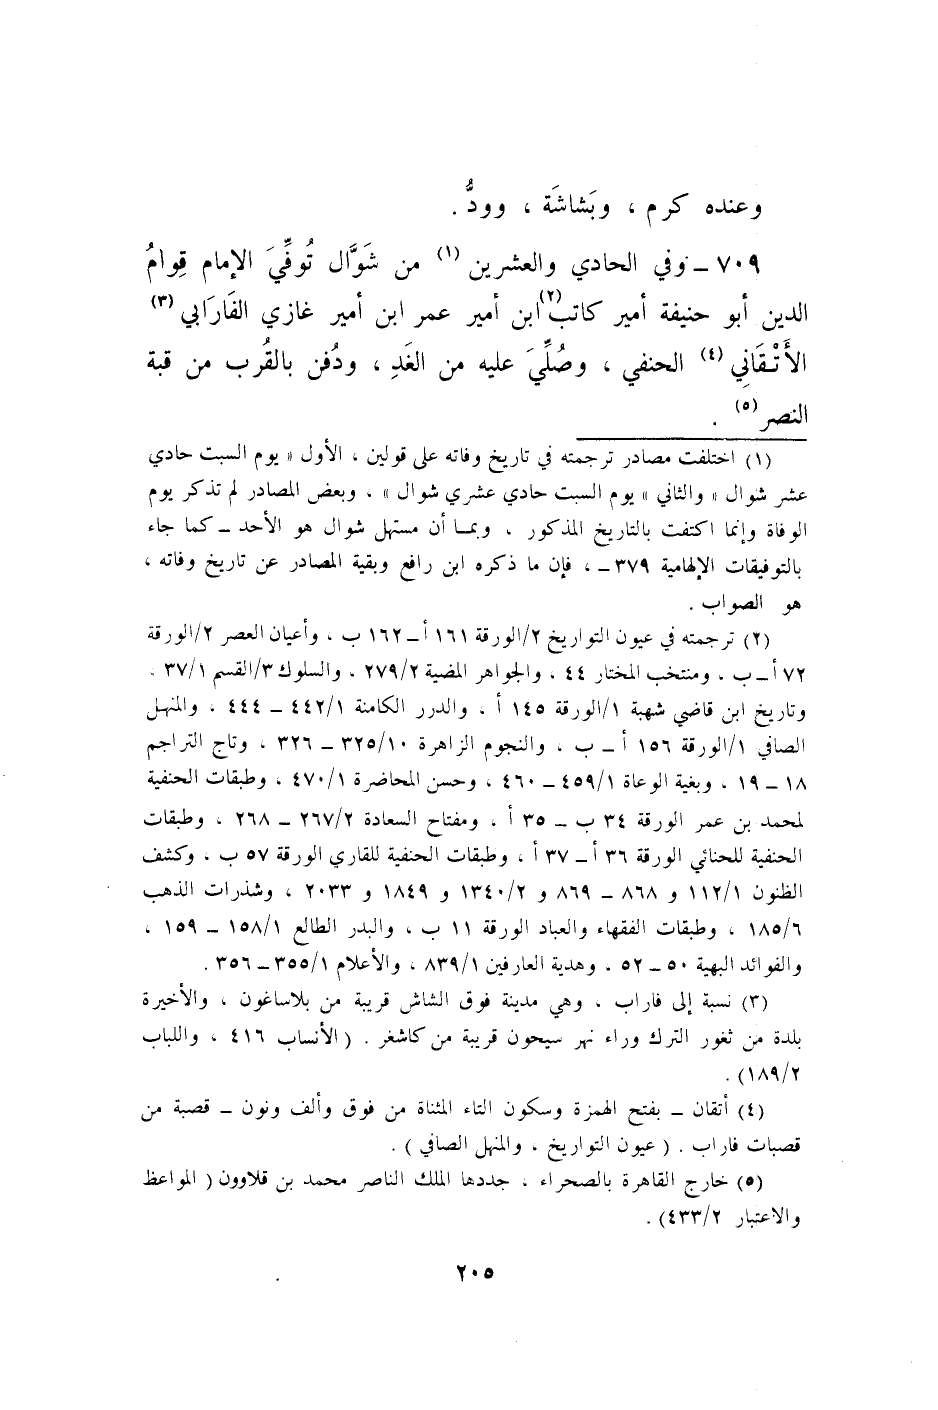 وعنده كرم ، وبَشاشَة ، وودُّ .
٧٠٩ ـ وفي الحادي والعشرين (١) من شَوَّال تُوفِّيَ الإمام قِوامُ
الدين أبو حنيفة أمير كاتب(٢) ابن أمير عمر ابن أمير غازي الفَارَابي (٣)
الأَتْقَانِي (٤) الحنفي ، وصُلِّيَ عليه من الغَدِ ، ودُفن بالقُرب من قبة
النصر (٥) .
(١) اختلفت مصادر ترجمته في تاريخ وفاته على قولين ، الأول « يوم السبت حادي
عشر شوال » والثاني « يوم السبت حادي عشري شوال » ، وبعض المصادر لم تذكر يوم
الوفاة وإنما اكتفت بالتاريخ المذكور . وبما أن مستهل شوال هو الأحد ـ كما جاء
بالتوفيقات الإلهامية ٣٧٩ ـ ، فإن ما ذكره ابن رافع وبقية المصادر عن تاريخ وفاته ،
هو الصواب .
(٢) ترجمته في عيون التواريخ ٢/الورقة ١٦١ أ ـ ١٦٢ ب ، وأعيان العصر ٢/الورقة
٧٢ أ ـ ب ، ومنتخب المختار ٤٤ ، والجواهر المضية ٢٧٩/٢ ، والسلوك ٣/القسم ٣٧/١ ،
وتاريخ ابن قاضي شهبة ١/الورقة ١٤٥ أ ، والدرر الكامنة ٤٤٢/١ ـ ٤٤٤ ، والمنهل
الصافي ١/الورقة ١٥٦ أ ـ ب ، والنجوم الزاهرة ٣٢٥/١٠ ـ ٣٢٦ ، وتاج التراجم
١٨ ـ ١٩ ، وبغية الوعاة ٤٥٩/١ ـ ٤٦٠ ، وحسن المحاضرة ٤٧٠/١ ، وطبقات الحنفية
لمحمد بن عمر الورقة ٣٤ ب ـ ٣٥ أ ، ومفتاح السعادة ٢٦٧/٢ ـ ٢٦٨ ، وطبقات
الحنفية للحنائي الورقة ٣٦ أ ـ ٣٧ أ ، وطبقات الحنفية للقاري الورقة ٥٧ ب ، وكشف
الظنون ١١٢/١ و ٨٦٨ ـ ٨٦٩ و ١٣٤٠/٢ و ١٨٤٩ و ٢٠٣٣ ، وشذرات الذهب
١٨٥/٦ ، وطبقات الفقهاء والعباد الورقة ١١ ب ، والبدر الطالع ١٥٨/١ ـ ١٥٩ ،
والفوائد البهية ٥٠ ـ ٥٢ ، وهدية العارفين ٨٣٩/١ ، والأعلام ٣٥٥/١ ـ ٣٥٦ .
(٣) نسبة إلى فاراب ، وهي مدينة فوق الشاش قريبة من بلاساغون ، والأخيرة
بلدة من ثغور الترك وراء نهر سيحون قريبة من كاشغر . ( الأنساب ٤١٦ ، واللباب
١٨٩/٢) .
(٤) أتقان ـ بفتح الهمزة وسكون التاء المثناة من فوق وألف ونون ـ قصبة من
قصبات فاراب . ( عيون التواريخ ، والمنهل الصافي ) .
(٥) خارج القاهرة بالصحراء ، جددها الملك الناصر محمد بن قلاوون ( المواعظ
والاعتبار ٤٣٣/٢) .
٢٠٥